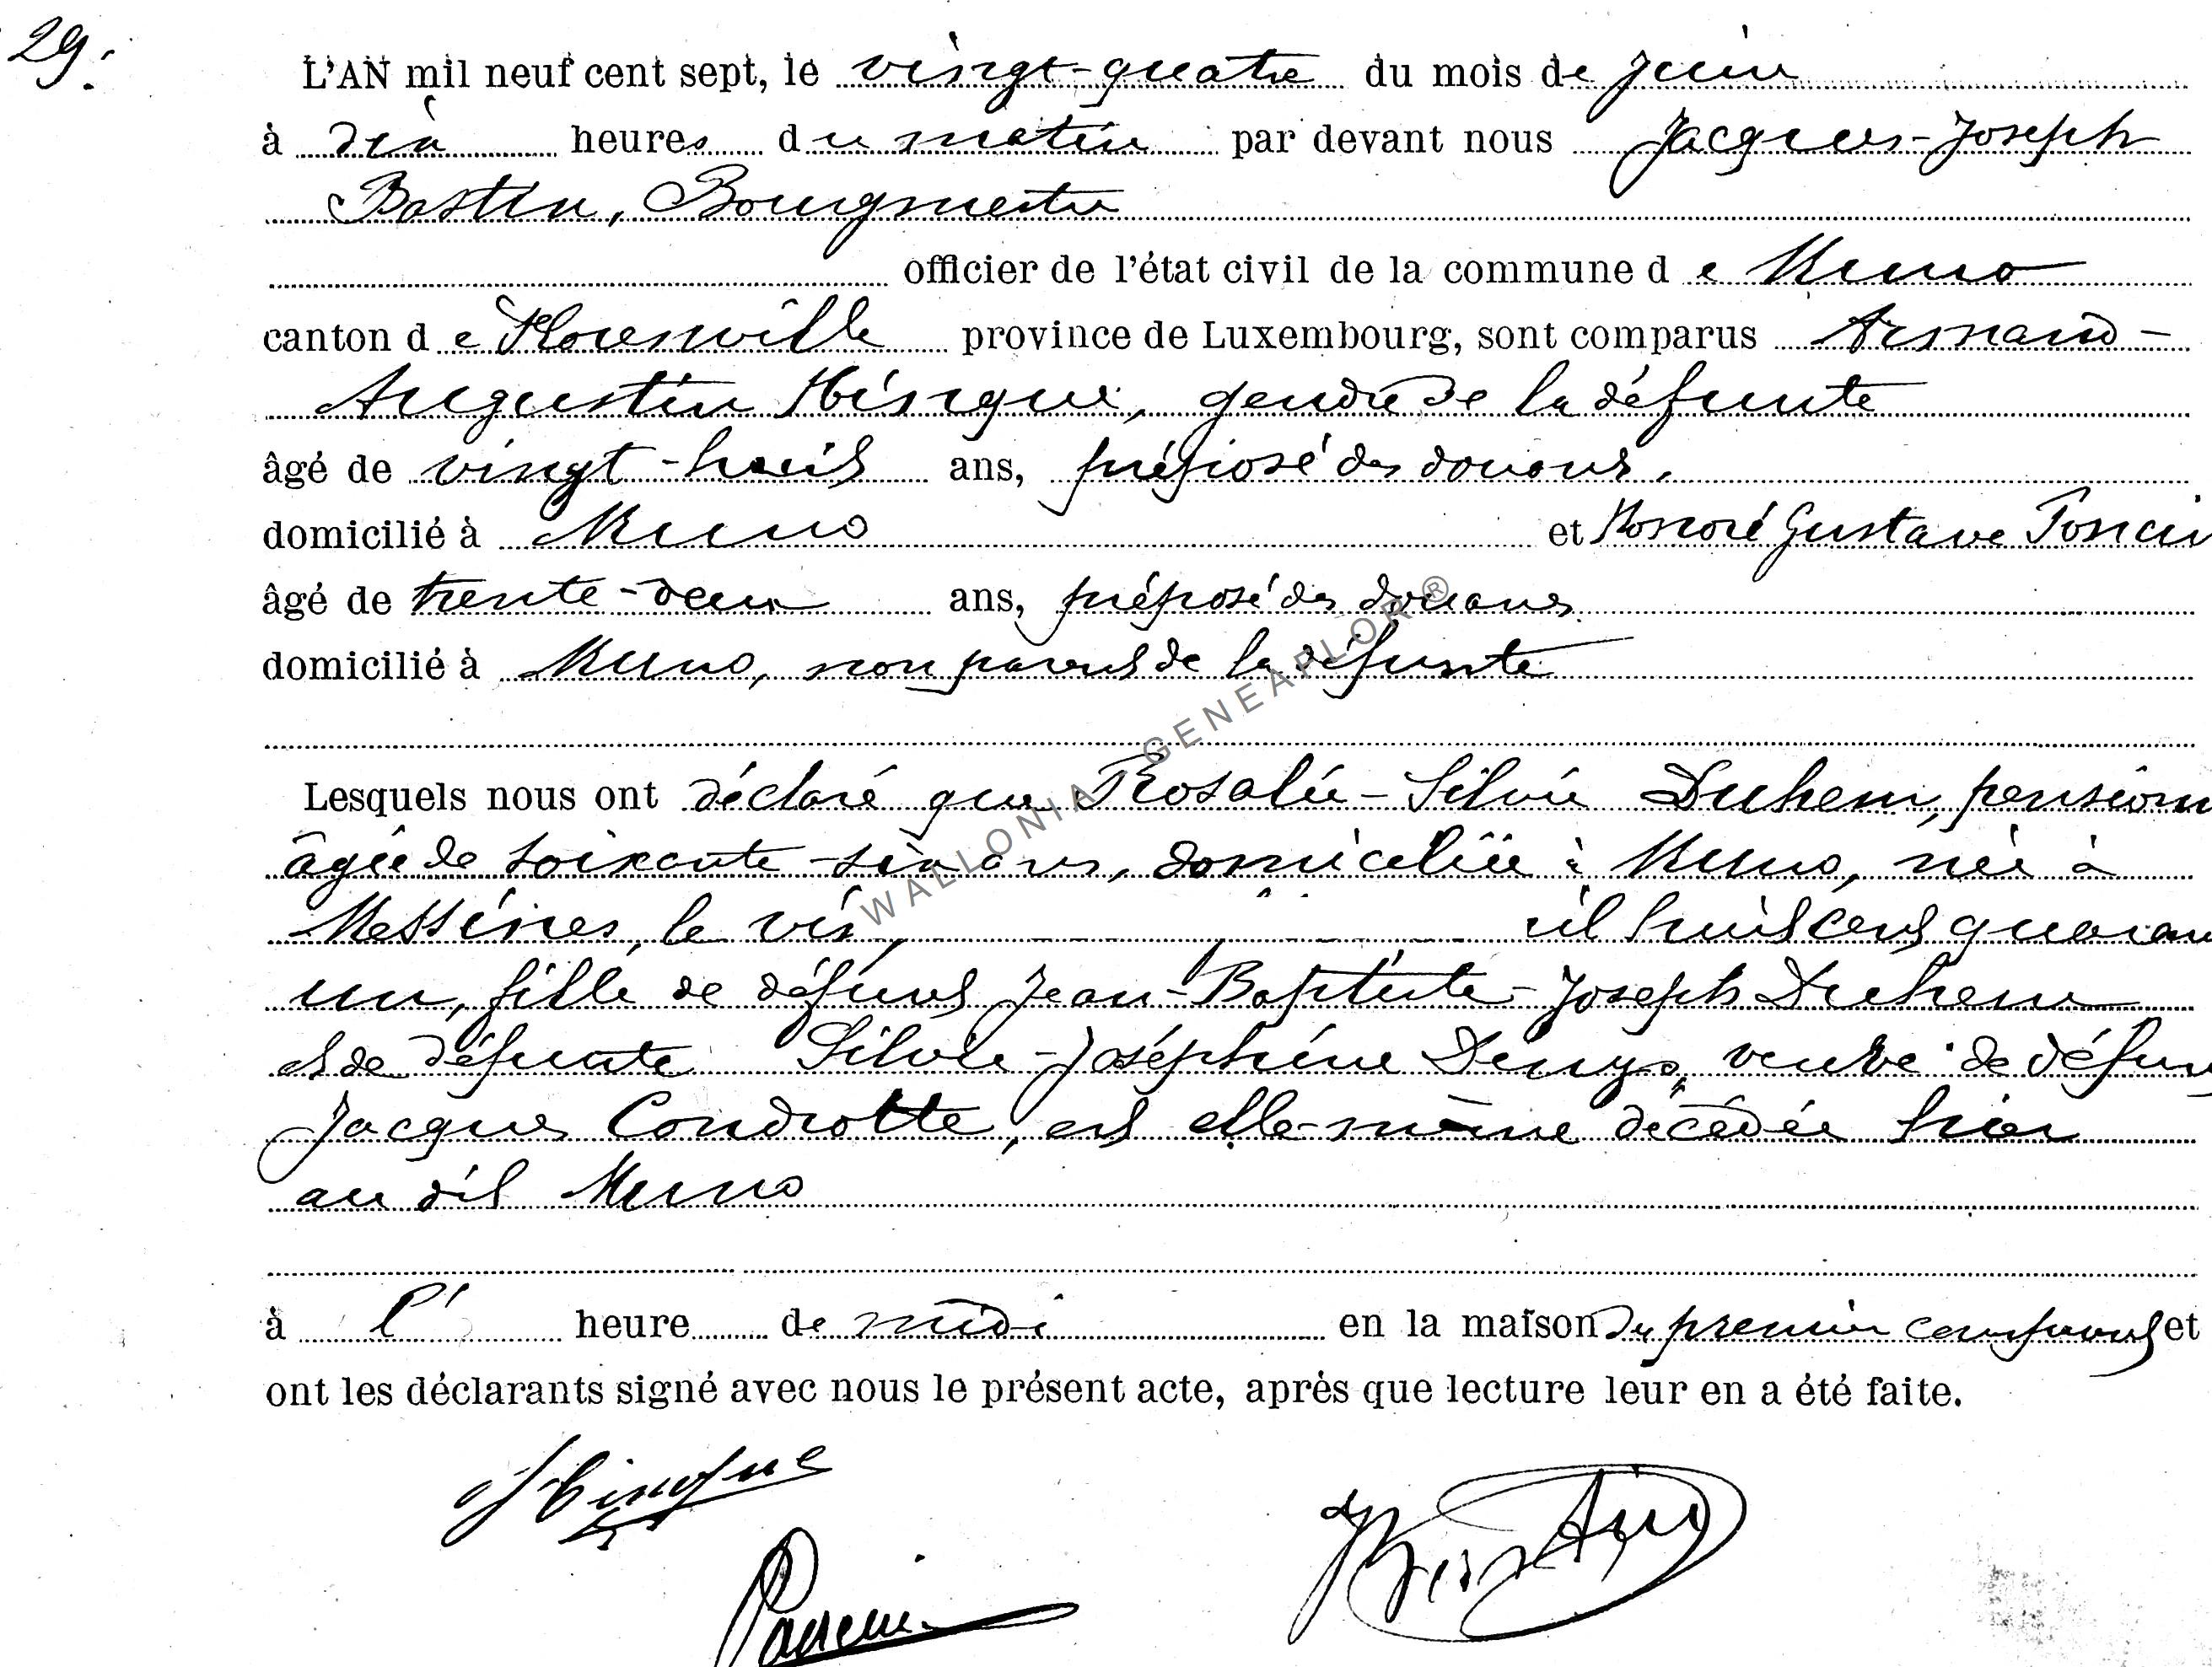 29.
L'AN mil neuf cent sept, le vingt-quatre du mois de juin
à dix heures du matin par devant nous Jacques-Joseph
Bastin, Bourgmestre
officier de l'état civil de la commune de Muno
canton de Florenville province de Luxembourg, sont comparus Armand-
Augustin Hingue, gendre de la défunte
âgé de vingt-huit ans, préposé des douanes,
domicilié à Muno et Honoré Gustave Poncin
âgé de trente-deux ans, préposé des douanes
domicilié à Muno, non parent de la défunte
Lesquels nous ont déclaré que Rosalie-Silvie Duhem, pensionn
âgée de soixante-six ans, domiciliée à Muno, née à
Messines, le vin il huit cent quaran
un, fille de défunt Jean-Baptiste-Joseph Duhem
et de défunte Silvie-Joséphine Denys, veuve de défun
Jacques Condrotte, est elle-même décédée hier
au dit Muno
à l' heure de midi en la maison du premier comparant et
ont les déclarants signé avec nous le présent acte, après que lecture leur en a été faite.
Hingue
Poncin
JBastin
WALLONIA GENEAPLOR ®